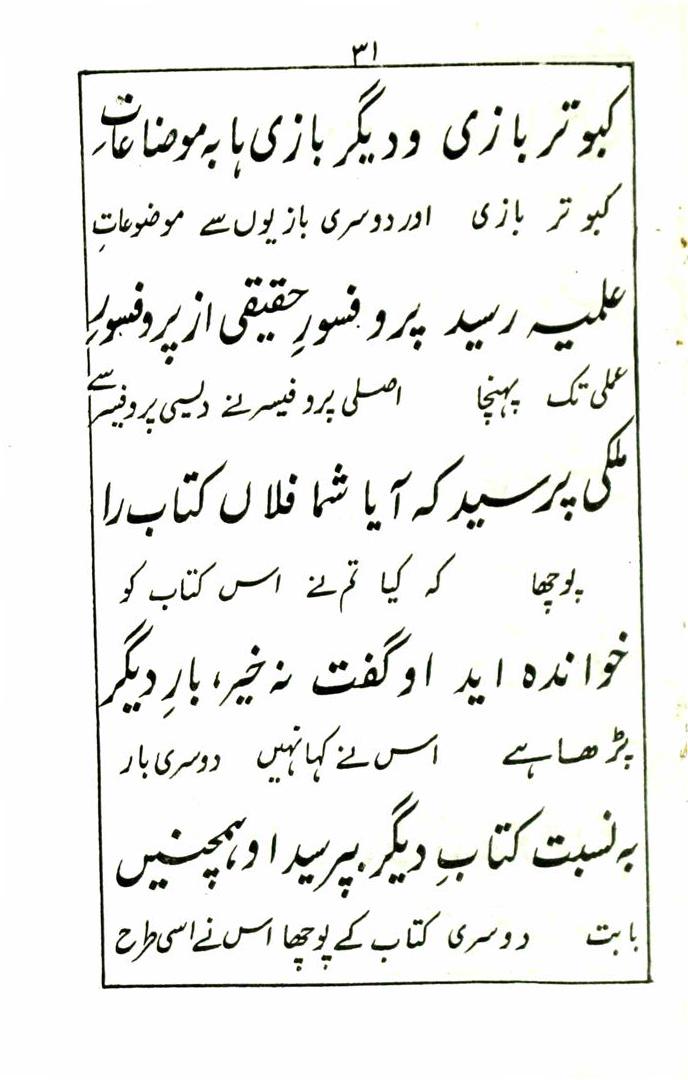 ۳۱
کبوتر بازی و دیگر بازی ہا بہ موضاعاتِ
کبوتر بازی اور دوسری بازیوں سے موضوعاتِ
علمیہ رسید پروفسورِ حقیقی از پروفسورِ
علمی تک پہنچا اصلی پروفیسر نے دیسی پروفیسر سے
ملکی پرسید کہ آیا شما فلاں کتاب را
پوچھا کہ کیا تم نے اس کتاب کو
خواندہ اید او گفت نہ خیر، بارِ دیگر
پڑھا ہے اس نے کہا نہیں دوسری بار
بہ نسبت کتابِ دیگر بپرسید او ہمچنیں
بابت دوسری کتاب کے پوچھا اس نے اسی طرح